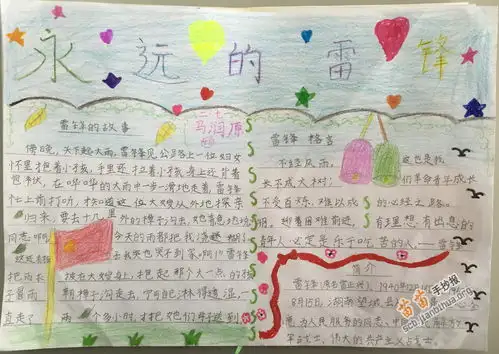 永远的雷锋
二、七
马润原
雷锋的故事
傍晚，天下起大雨，雷锋见公路上一位妇女
怀里抱着小孩，手里还拉着小孩，身上还背着
包袱，在哗哗的大雨中一步一滑地走着，雷锋
忙上前打听，才知道这位大嫂从外地探亲
归来，要去十几里外的樟子沟，她着急地说
同志啊
今天的雨都把我浇迷糊
去我哭也哭不到家啊!"雷锋
把雨衣
披在大嫂身上，抱起那个大一点的孩
子冒雨
朝樟子沟走去，宁可自己淋得透湿，一
直走了
两个多小时，才把她们母子送到
雷锋 格言
不经风雨，
长不成大树；
不受百炼，难以成
钢。迎着困难前进，
这也是我
们革命青年成长
的必经之路。
有理想有出息的
青年人必定是乐于吃苦的人。——雷锋
简介
雷锋（原名雷正兴），1940年12月
8月15日，湖南望城县
为人民服务的同志，
共产主义战士
苗苗手抄报
scb.jianbihua.org